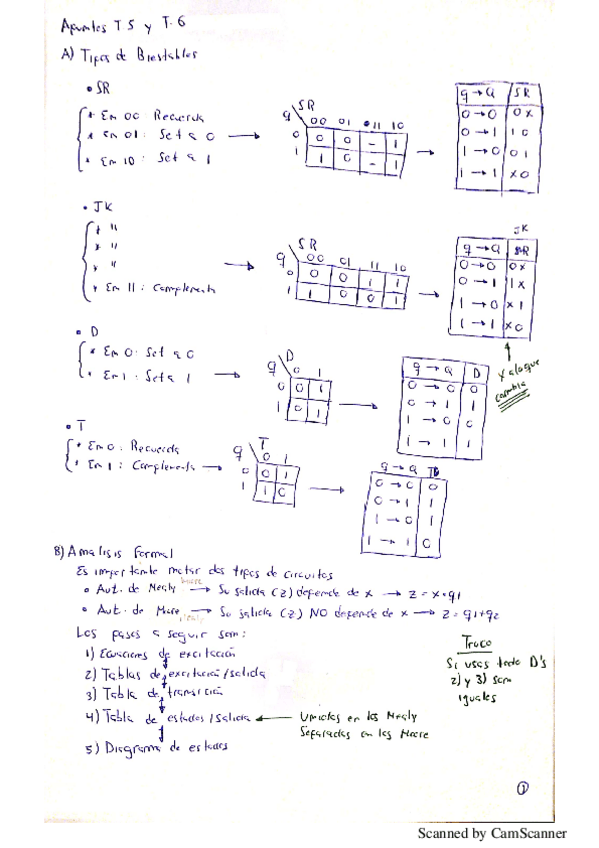 Apuntes T5 y T.6
A) Tipos de Biestables
• SR
* En 00: Recuerda
* En 01: Set a 0
* En 10: Set a 1
q \ SR 00 01 11 10
0 0 0 - 1
1 1 0 - 1
q → Q SR
0 → 0 0x
0 → 1 10
1 → 0 01
1 → 1 x0
• JK
* "
* "
* "
* En 11: Complementa
q \ SR 00 01 11 10
0 0 0 1 1
1 1 0 0 1
JK
q → Q
0 → 0 0x
0 → 1 1x
1 → 0 x1
1 → 1 x0
x a lo que
cambia
• D
* En 0: Set a 0
* En 1: Set a 1
q \ D 0 1
0 0 1
1 0 1
q → Q D
0 → 0 0
0 → 1 1
1 → 0 0
1 → 1 1
• T
* En 0: Recuerda
* En 1: Complementa
q \ T 0 1
0 0 1
1 1 0
q → Q T
0 → 0 0
0 → 1 1
1 → 0 1
1 → 1 0
B) Analisis formal
Es importante notar dos tipos de circuitos
• Aut. de Mealy → Su salida (z) depende de x → z = x·q1
• Aut. de Moore → Su salida (z) NO depende de x → z = q1+q2
Los pasos a seguir son:
1) Ecuaciones de excitación
2) Tablas de excitación/salida
3) Tabla de transición
4) Tabla de estados/salida ← Unidas en los Mealy
Separadas en los Moore
5) Diagrama de estados
Truco
Si usas todo D's
2) y 3) son
iguales
1
Scanned by CamScanner